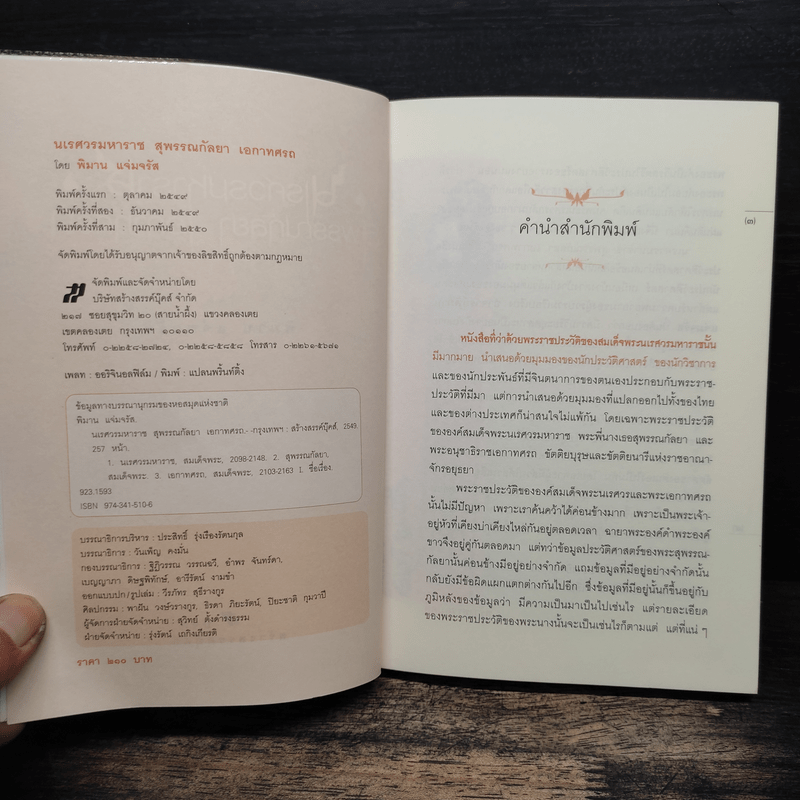 นเรศวรมหาราช สุพรรณกัลยา เอกาทศรถ
โดย พิมาน แจ่มจรัส
พิมพ์ครั้งแรก : ตุลาคม ๒๕๔๙
พิมพ์ครั้งที่สอง : ธันวาคม ๒๕๔๙
พิมพ์ครั้งที่สาม : กุมภาพันธ์ ๒๕๕๐
จัดพิมพ์โดยได้รับอนุญาตจากเจ้าของลิขสิทธิ์ถูกต้องตามกฎหมาย
จัดพิมพ์และจัดจำหน่ายโดย
บริษัทสร้างสรรค์บุ๊คส์ จำกัด
๒๑๗ ซอยสุขุมวิท ๒๐ (สายน้ำผึ้ง) แขวงคลองเตย
เขตคลองเตย กรุงเทพฯ ๑๐๑๑๐
โทรศัพท์ ๐-๒๒๕๘-๒๗๒๔, ๐-๒๒๕๘-๕๘๕๘ โทรสาร ๐-๒๒๖๑-๕๖๗๑
เพลท : ออริจินอลฟิล์ม / พิมพ์ : แปลนพริ้นท์ติ้ง
ข้อมูลทางบรรณานุกรมของหอสมุดแห่งชาติ
พิมาน แจ่มจรัส.
นเรศวรมหาราช สุพรรณกัลยา เอกาทศรถ.--กรุงเทพฯ : สร้างสรรค์บุ๊คส์, 2549.
257 หน้า.
1. นเรศวรมหาราช, สมเด็จพระ, 2098-2148. 2. สุพรรณกัลยา,
สมเด็จพระ. 3. เอกาทศรถ, สมเด็จพระ, 2103-2163 I. ชื่อเรื่อง.
923.1593
ISBN 974-341-510-6
บรรณาธิการบริหาร : ประสิทธิ์ รุ่งเรืองรัตนกุล
บรรณาธิการ : วันเพ็ญ คงมั่น
กองบรรณาธิการ : ฐิฏิวรรณ วรรณฉวี, อำพร จันทร์ดา,
เบญญาภา ดิษฐพิทักษ์, อารีรัตน์ งามขำ
ออกแบบปก/รูปเล่ม : วีรภัทร สุธีรางกูร
ศิลปกรรม : พาฝัน วงษ์วรางกูร, ธิรดา ภิยะรัตน์, ปิยะชาติ กุมวาปี
ผู้จัดการฝ่ายจัดจำหน่าย : สุวิทย์ ตั้งดำรงธรรม
ฝ่ายจัดจำหน่าย : รุ่งรัตน์ เถกิงเกียรติ
ราคา ๒๑๐ บาท
(๓)
คำนำสำนักพิมพ์
หนังสือที่ว่าด้วยพระราชประวัติของสมเด็จพระนเรศวรมหาราชนั้น
มีมากมาย นำเสนอด้วยมุมมองของนักประวัติศาสตร์ ของนักวิชาการ
และของนักประพันธ์ที่มีจินตนาการของตนเองประกอบกับพระราช-
ประวัติที่มีมา แต่การนำเสนอด้วยมุมมองที่แปลกออกไปทั้งของไทย
และของต่างประเทศก็น่าสนใจไม่แพ้กัน โดยเฉพาะพระราชประวัติ
ขององค์สมเด็จพระนเรศวรมหาราช พระพี่นางเธอสุพรรณกัลยา และ
พระอนุชาธิราชเอกาทศรถ ขัตติยบุรุษและขัตติยนารีแห่งราชอาณา-
จักรอยุธยา
พระราชประวัติขององค์สมเด็จพระนเรศวรและพระเอกาทศรถ
นั้นไม่มีปัญหา เพราะเราค้นคว้าได้ค่อนข้างมาก เพราะเป็นพระเจ้า-
อยู่หัวที่เคียงบ่าเคียงไหล่กันอยู่ตลอดเวลา ฉายาพระองค์ดำพระองค์
ขาวจึงอยู่คู่กันตลอดมา แต่ทว่าข้อมูลประวัติศาสตร์ของพระสุพรรณ-
กัลยานั้นค่อนข้างมีอยู่อย่างจำกัด แถมข้อมูลที่มีอยู่อย่างจำกัดนั้น
กลับยังมีข้อผิดแผกแตกต่างกันไปอีก ซึ่งข้อมูลที่มีอยู่นั้นก็ขึ้นอยู่กับ
ภูมิหลังของข้อมูลว่า มีความเป็นมาเป็นไปเช่นไร แต่รายละเอียด
ของพระราชประวัติของพระนางนั้นจะเป็นเช่นไรก็ตามแต่ แต่ที่แน่ ๆ